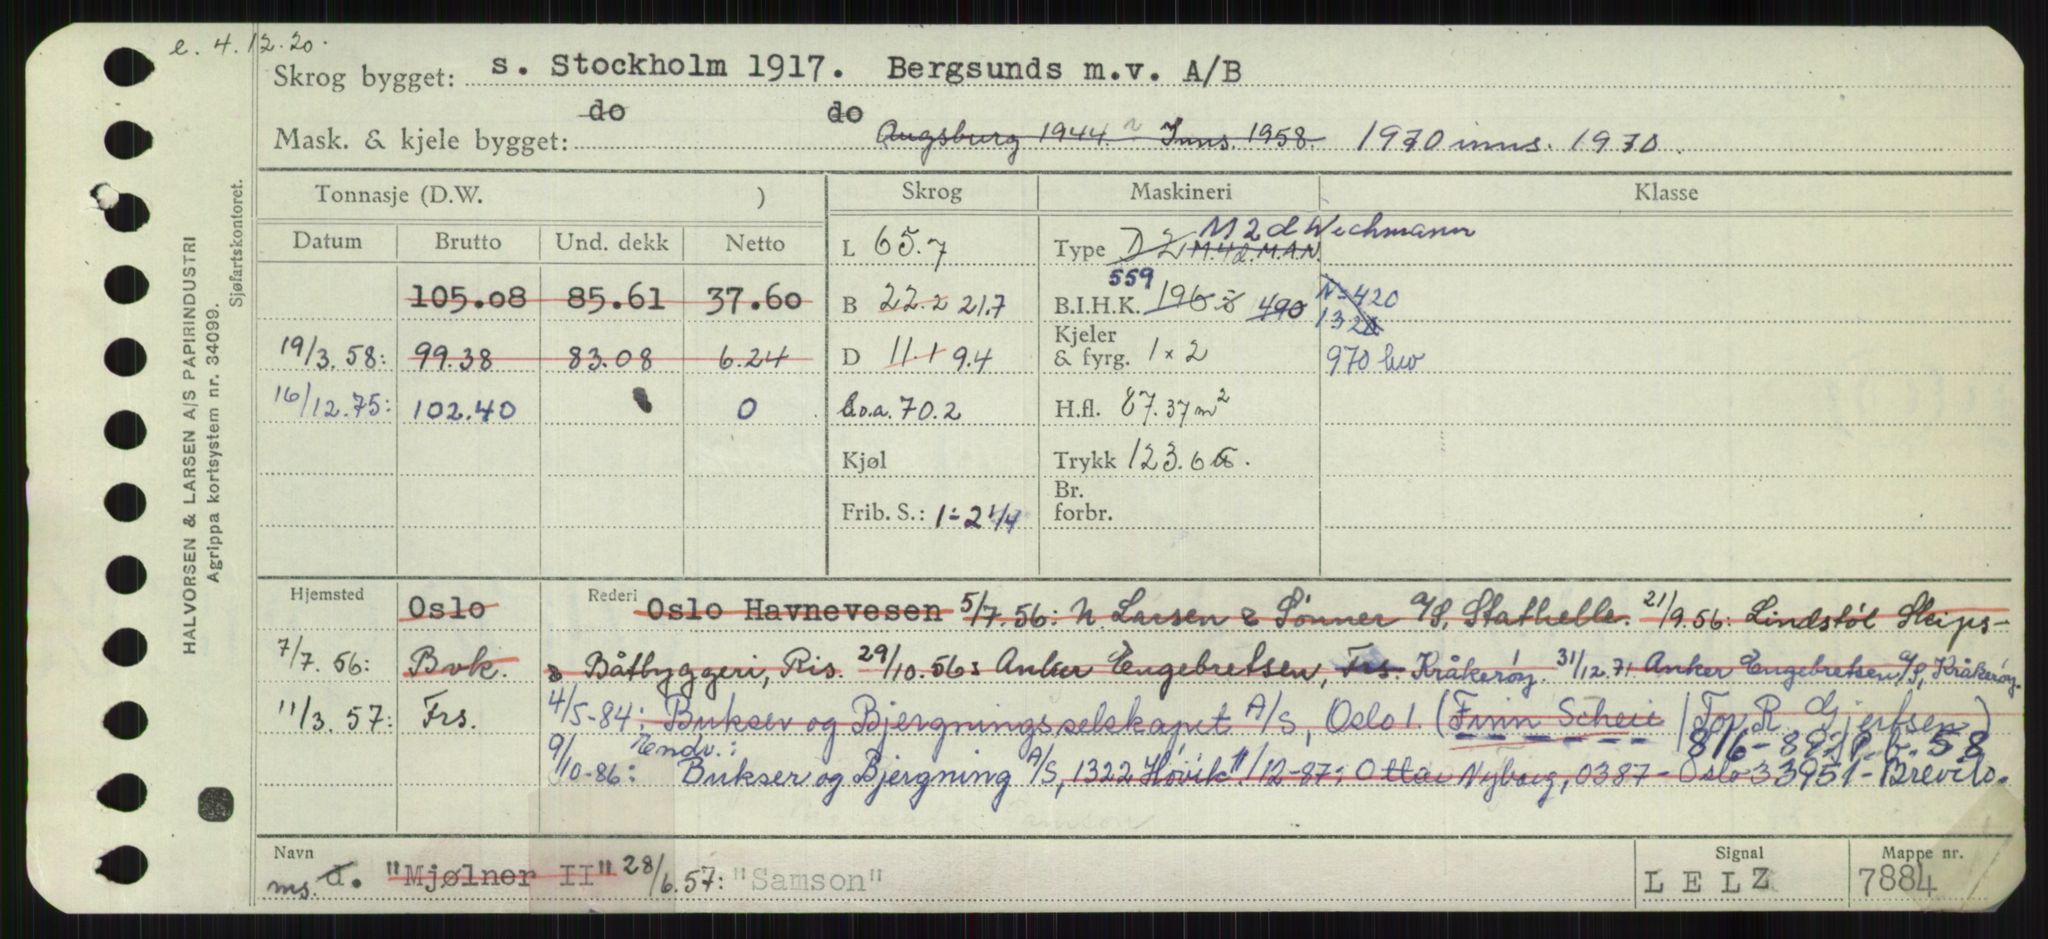 e. 4.12.20.
Skrog bygget: s. Stockholm 1917. Bergsunds m.v. A/B
do do
Mask. & kjele bygget: Augsburg 1944. Inns. 1958. 1970 inns. 1970.
Tonnasje (D.W. ) Skrog Maskineri Klasse
Datum Brutto Und. dekk Netto L 65.7 Type M 2 d Wichmann
M.4d.M.A.N.
559
105.08 85.61 37.60 B 22.2 21.7 B.I.H.K. 196 490 N=420
132
19/3.58: 99.38 83.08 6.24 D 11.1 9.4 Kjeler & fyrg. 1 x 2 970 hw
16/12.75: 102.40 0 L.o.a. 70.2 H.fl. 87.37 m²
Kjøl Trykk 123.6
Frib. S.: 1-2 1/4 Br. forbr.
Hjemsted Oslo Rederi Oslo Havnevesen 5/7.56: N. Larsen & Sønner a/S, Stathelle. 21/9.56: Lindstøl Skips-
7/7.56: Bvk. & Båtbyggeri, Ris. 29/10.56: Anker Engebretsen, Frs. Kråkerøy. 31/12.71 Anker Engebretsen a/S, Kråkerøy.
11/3.57: Frs. 4/5-84: Buksér og Bjergningsselskapet A/S, Oslo 1. (Finn Scheie / Tor R. Gjertsen)
Endr.: 8/6-88
9/10-86: Bukser og Bjergning A/S, 1322 Høvik 11/12-87: Otta Nyborg, 0387-Oslo 3 3951-Brevik.
Navn
ms. d. "Mjølner II" 28/6.57: "Samson"
Signal
LELZ
Mappe nr.
7884
HALVORSEN & LARSEN A/S PAPIRINDUSTRI
Agrippa kortsystem nr. 34099.
Sjøfartskontoret.